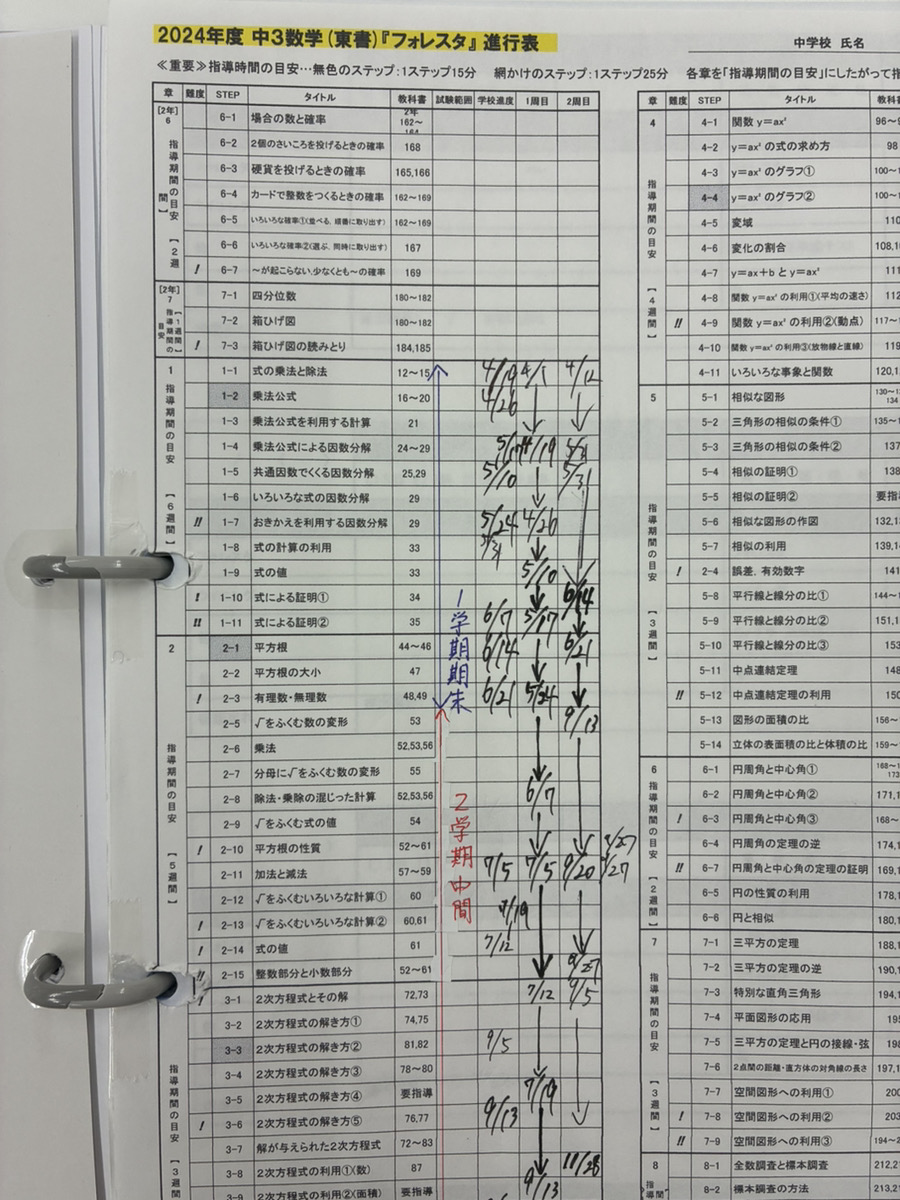 2024年度 中3数学(東書)『フォレスタ』進行表
中学校 氏名
≪重要≫指導時間の目安…無色のステップ:1ステップ15分 網かけのステップ:1ステップ25分 各章を「指導期間の目安」にしたがって指
章 難度 STEP タイトル 教科書 試験範囲 学校進度 1周目 2周目
[2年] 6 指導期間の目安 【2週間】
6-1 場合の数と確率 2年 162～164
6-2 2個のさいころを投げるときの確率 168
6-3 硬貨を投げるときの確率 165,166
6-4 カードで整数をつくるときの確率 162～169
6-5 いろいろな確率①(並べる、順番に取り出す) 162～169
6-6 いろいろな確率②(選ぶ、同時に取り出す) 167
! 6-7 ～が起こらない、少なくとも～の確率 169
[2年] 7 指導期間の目安 【1週間】
7-1 四分位数 180～182
7-2 箱ひげ図 180～182
! 7-3 箱ひげ図の読みとり 184,185
1 指導期間の目安 【6週間】
1-1 式の乗法と除法 12～15 4/19 4/1 4/12
1-2 乗法公式 16～20 4/26
1-3 乗法公式を利用する計算 21
1-4 乗法公式による因数分解 24～29 5/17 4/19 5/31
1-5 共通因数でくくる因数分解 25,29 5/10 5/31
1-6 いろいろな式の因数分解 29
!! 1-7 おきかえを利用する因数分解 29 5/24 4/26
1-8 式の計算の利用 33 5/31
1-9 式の値 33 5/10
! 1-10 式による証明① 34 6/14
!! 1-11 式による証明② 35 6/7 5/17
1学期期末
2 指導期間の目安 【5週間】
2-1 平方根 44～46 6/14 6/21
2-2 平方根の大小 47
! 2-3 有理数・無理数 48,49 6/21 5/24
2-5 √をふくむ数の変形 53 9/13
2-6 乗法 52,53,56
2-7 分母に√をふくむ数の変形 55
2-8 除法・乗除の混じった計算 52,53,56 6/7
2-9 √をふくむ式の値 54
! 2-10 平方根の性質 52～61
2-11 加法と減法 57～59 7/5 7/5 9/20
2-12 √をふくむいろいろな計算① 60
! 2-13 √をふくむいろいろな計算② 60,61
! 2-14 式の値 61 7/12
!! 2-15 整数部分と小数部分 52～61 9/27
2学期中間
指導期間の目安 【3週
! 3-1 2次方程式とその解 72,73 7/12 9/5
3-2 2次方程式の解き方① 74,75
3-3 2次方程式の解き方② 81,82 9/5
3-4 2次方程式の解き方③ 78～80
3-5 2次方程式の解き方④ 要指導 7/19
! 3-6 2次方程式の解き方⑤ 76,77 9/13
3-7 解が与えられた2次方程式 72～83
3-8 2次方程式の利用①(数) 87 11/28
3-9 2次方程式の利用②(面積) 要指導 9/13
章 難度 STEP タイトル 教科書
4 指導期間の目安 【4週間】
4-1 関数 y＝ax² 96～
4-2 y＝ax² の式の求め方 98
4-3 y＝ax² のグラフ① 100～
4-4 y＝ax² のグラフ② 100～
4-5 変域 110
4-6 変化の割合 108,
4-7 y＝ax＋b と y＝ax² 111
4-8 関数 y＝ax² の利用①(平均の速さ) 112
!! 4-9 関数 y＝ax² の利用②(動点) 117～
4-10 関数 y＝ax² の利用③(放物線と直線) 119
4-11 いろいろな事象と関数 120,
5 指導期間の目安 【3週間】
5-1 相似な図形 130～ 134
5-2 三角形の相似の条件① 135～
5-3 三角形の相似の条件② 137
5-4 相似の証明① 138
5-5 相似の証明② 要指
5-6 相似な図形の作図 132,
5-7 相似の利用 139,
! 2-4 誤差、有効数字 141
5-8 平行線と線分の比① 144～
5-9 平行線と線分の比② 151,
5-10 平行線と線分の比③ 153
5-11 中点連結定理 148
!! 5-12 中点連結定理の利用 150
5-13 図形の面積の比 156～
5-14 立体の表面積の比と体積の比 159～
6 指導期間の目安 【2週間】
6-1 円周角と中心角① 168～ 173
6-2 円周角と中心角② 171,
! 6-3 円周角と中心角③ 168～
6-4 円周角の定理の逆 174,
!! 6-7 円周角と中心角の定理の証明 169,
6-5 円の性質の利用 178,
6-6 円と相似 180,
7 指導期間の目安 【3週間】
7-1 三平方の定理 188,
7-2 三平方の定理の逆 190,
7-3 特別な直角三角形 194,
7-4 平面図形の応用 195
7-5 三平方の定理と円の接線・弦 198
7-6 2点間の距離・直方体の対角線の長さ 197,
7-7 空間図形への利用① 200
! 7-8 空間図形への利用② 203
!! 7-9 空間図形への利用③ 194～
8 指導
8-1 全数調査と標本調査 212,
8-2 標本調査の方法 213,